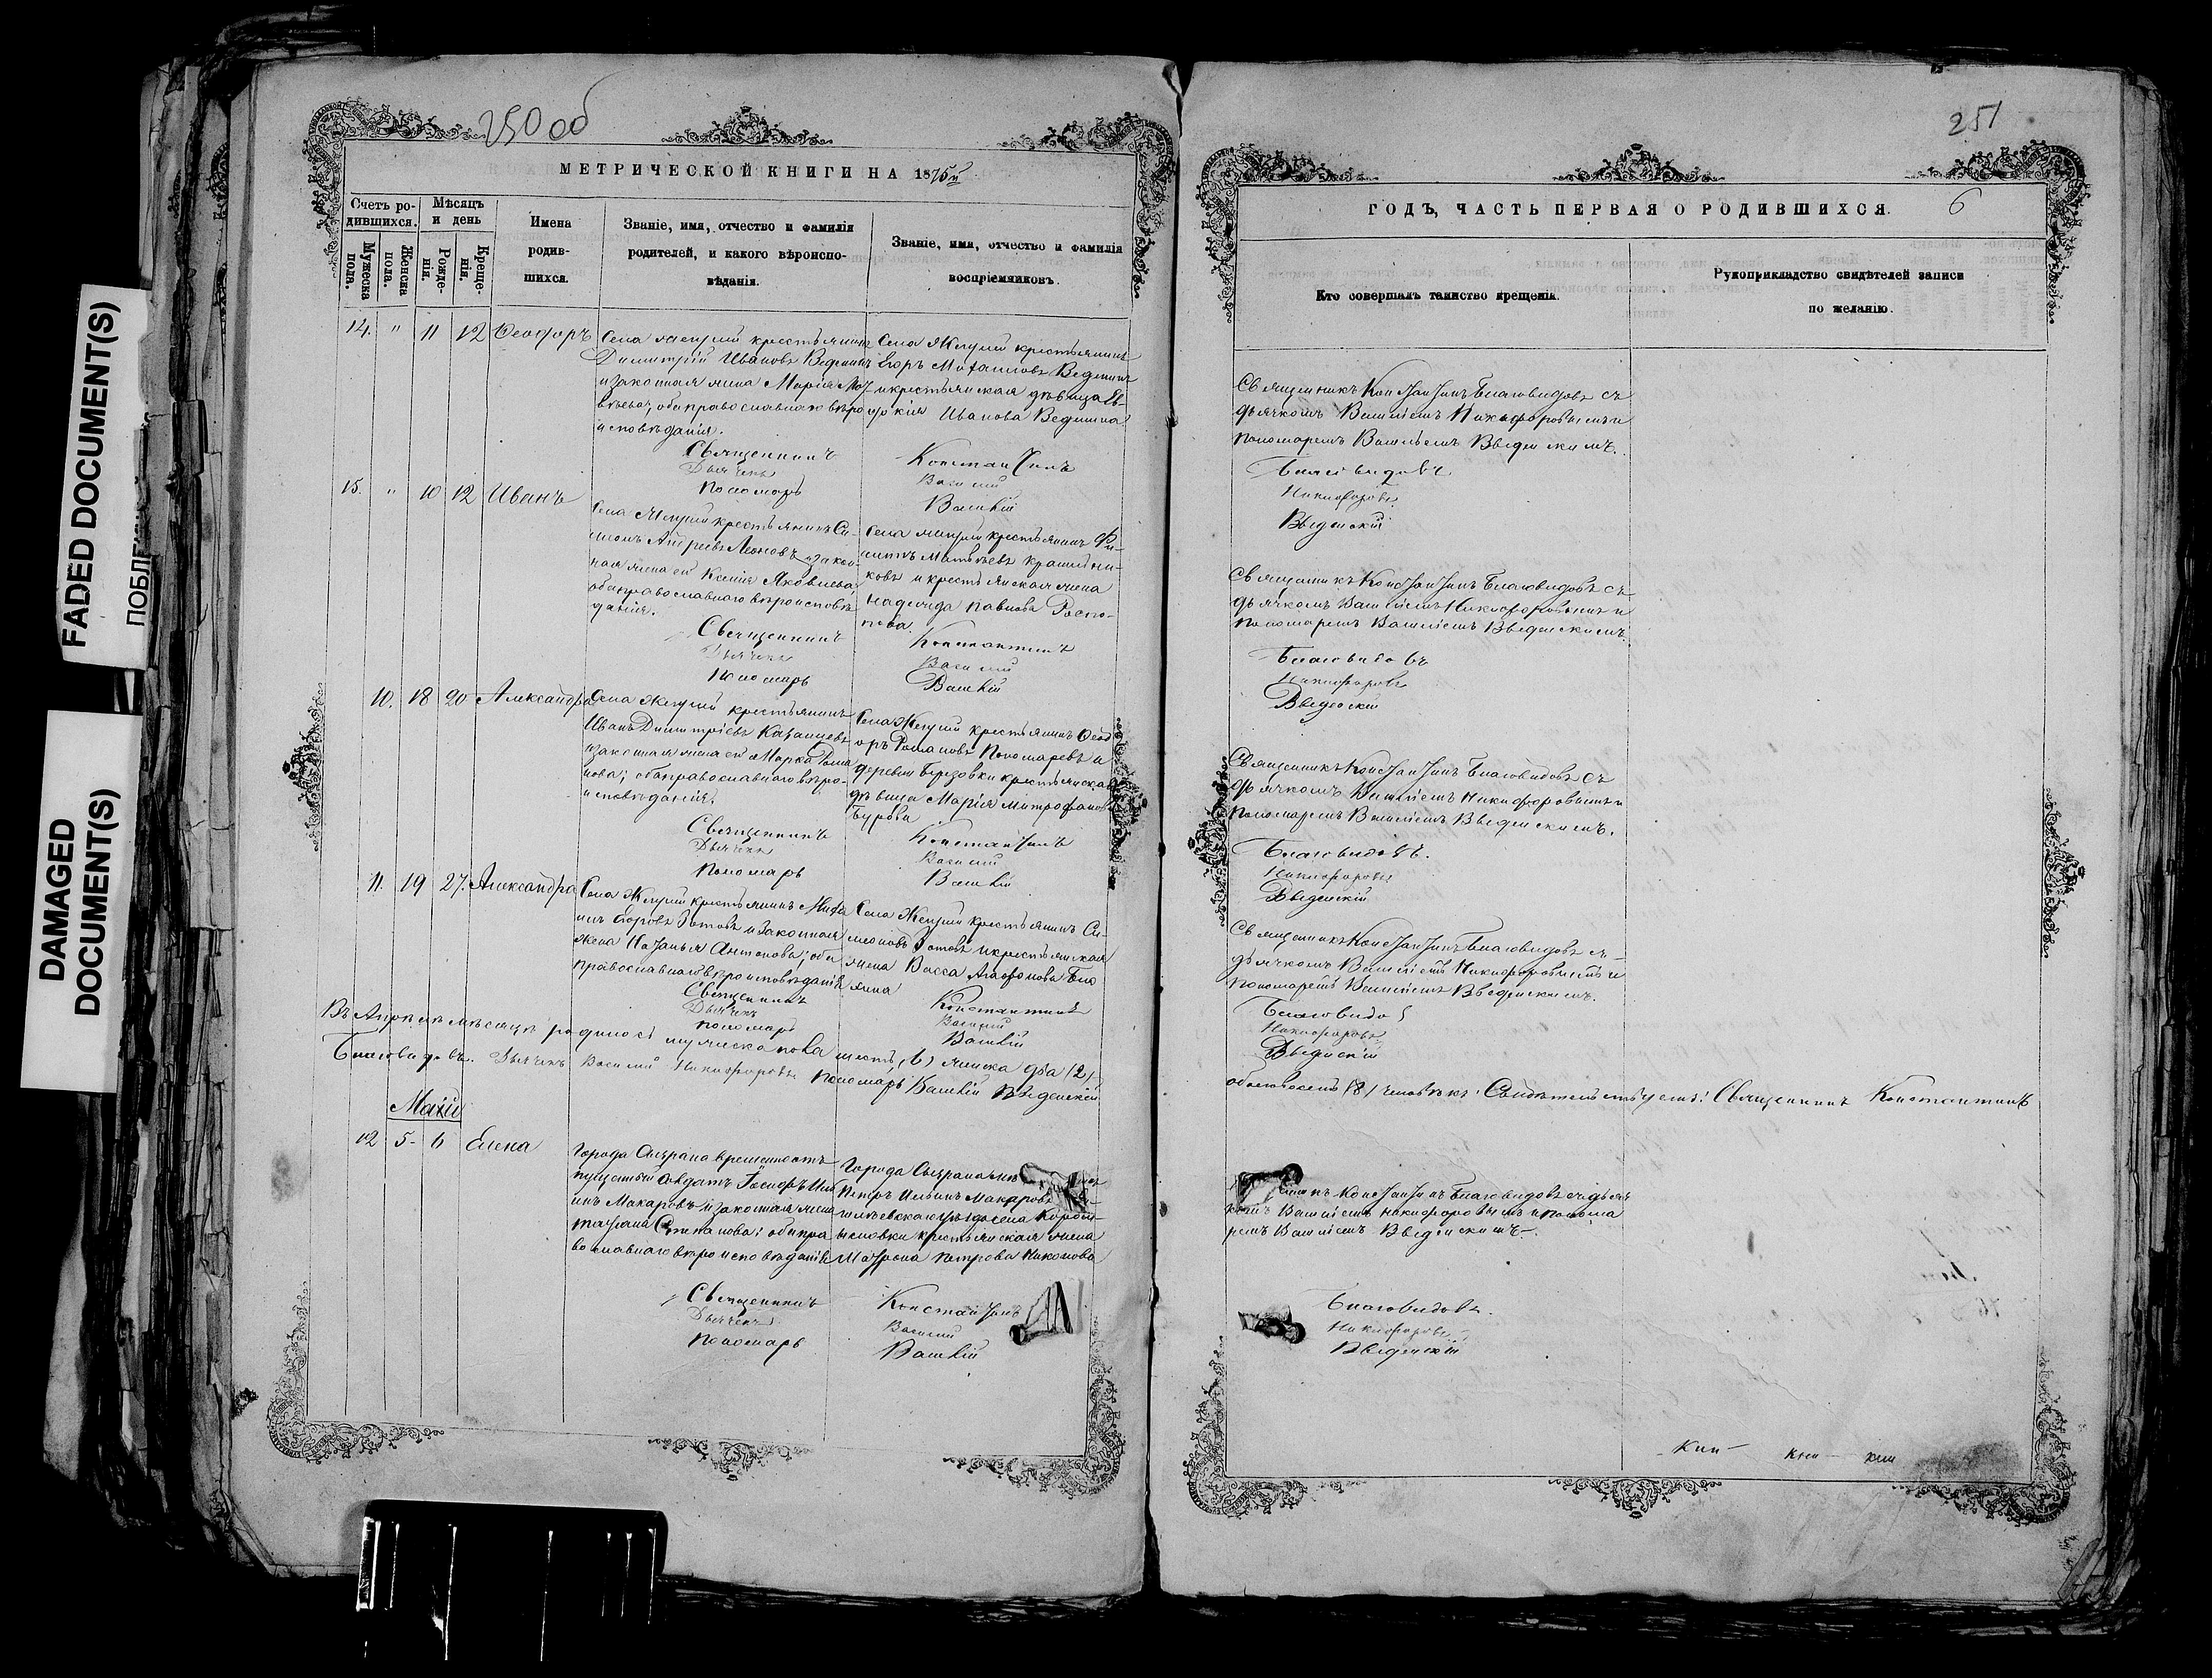 FADED DOCUMENT(S)
DAMAGED
DOCUMENT(S)
250 об
МЕТРИЧЕСКОЙ КНИГИ НА 1875й
Счетъ ро-
дившихся.
Мужеска
пола.
Женска
пола.
Мѣсяцъ
и день
Рожде-
нія.
Креще-
нія.
Имена
родив-
шихся.
Званіе, имя, отчество и фамилія
родителей, и какого вѣроиспо-
вѣданія.
Званіе, имя, отчество и фамилія
воспріемниковъ.
14. " 11 12 Ѳеодоръ
Села крестьянинъ
Димитрій Ивановъ Веденинъ
и законная жена Марія
обаправославнаго вѣро
исповѣданія.
Села крестьянинъ
Егоръ Михаиловъ Веденинъ
и крестьянская дѣвица Ев-
докія Иванова Веденина
Священникъ Константинъ
Дьячекъ Василій
Пономарь Василій
15. " 10 12 Иванъ
Села крестьянинъ Си-
меонъ Андреевъ Леоновъ и закон-
ная жена ей Ксенія Яковлева;
обаправославнаго вѣроисповѣ
данія.
Села крестьянинъ Фи-
липъ Матвѣевъ Крашенни-
ковъ и крестьянская жена
Надежда Павлова Распо-
пова
Священникъ Константинъ
Дьячекъ Василій
Пономарь Василій
10. 18 20 Александра
Села крестьянинъ
Иванъ Димитріевъ Казанцевъ
изаконная жена ей Марѳа Рома
нова; обаправославнаго вѣро-
исповѣданія.
Села крестьянинъ Ѳеод
оръ Романовъ Пономаревъ и
деревни Березовки крестьянская
дѣвица Марія Митрофанова
Бурова
Священникъ Константинъ
Дьячекъ Василій
Пономарь Василій
11. 19 27. Александра
Села крестьянинъ Миха
илъ Егоровъ Зотовъ и законная
жена Наталья Антонова; оба
православнаго вѣроисповѣданія
Села крестьянинъ Си-
меоновъ Зотовъ и крестьянская
жена Васса Агафонова
Священникъ Константинъ
Дьячекъ Василій
Пономарь Василій
Въ Апрѣлѣ мѣсяцѣ родилось мужеска пола шесть (6) женска два (2)
Благовидовъ. Дьячекъ Василій Никифоровъ Пономарь Василій Введенскій
Маій
12 5- 6 Елена
Города Сызрана временноот
пущеный солдатъ Іосифъ Иль
инъ Макаровъ и законная жена
Степанова; оба пра
вославнаго вѣроисповѣданія
Города Сызрана
Петръ Ильинъ Макаровъ
крестьянская жена
Матрона Петрова Никонова
Священникъ Константинъ
Дьячекъ Василій
Пономарь Василій
251
6
ГОДЪ, ЧАСТЬ ПЕРВАЯ О РОДИВШИХСЯ.
Кто совершалъ таинство крещенія.
Рукоприкладство свидѣтелей записи
по желанію.
Священникъ Константинъ Благовидовъ съ
дьячкомъ Василіемъ Никифоровымъ и
пономаремъ Василіемъ Введенскимъ.
Благовидовъ
Никифоровъ
Введенскій
Священникъ Константинъ Благовидовъ съ
дьячкомъ Василіемъ Никифоровымъ и
пономаремъ Василіемъ Введенскимъ
Благовидовъ
Никифоровъ
Введенскій
Священникъ Константинъ Благовидовъ съ
дьячкомъ Василіемъ Никифоровымъ и
пономаремъ Василіемъ Введенскимъ.
Благовидовъ.
Никифоровъ
Введенскій
Священникъ Константинъ Благовидовъ съ
дьячкомъ Василіемъ Никифоровымъ и
пономаремъ Василіемъ Введенскимъ.
Благовидовъ
Никифоровъ
Введенскій
обоего восемь (8) человѣкъ. Свидѣтельствуемъ: Священникъ Константинъ
Константинъ Благовидовъ съ дьяч
комъ Василіемъ Никифоровымъ и понома
ремъ Василіемъ Введенскимъ.
Благовидовъ.
Никифоровъ
Введенскій